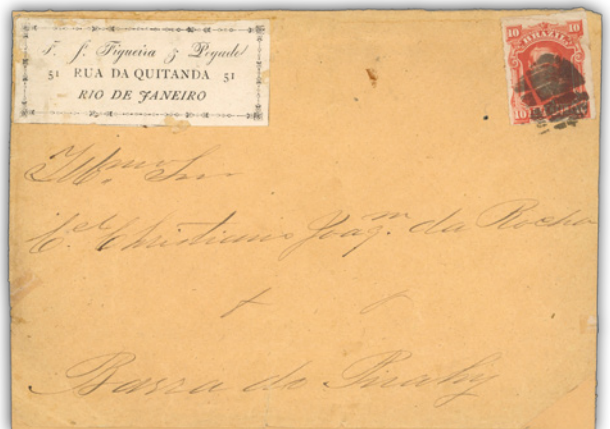 F. J. Figueira & Pegado
51 RUA DA QUITANDA 51
RIO DE JANEIRO
10 BRAZIL 10
10 10
Illmo Snr
Cel Christiano Joaqm da Rocha
Barra do Pirahy